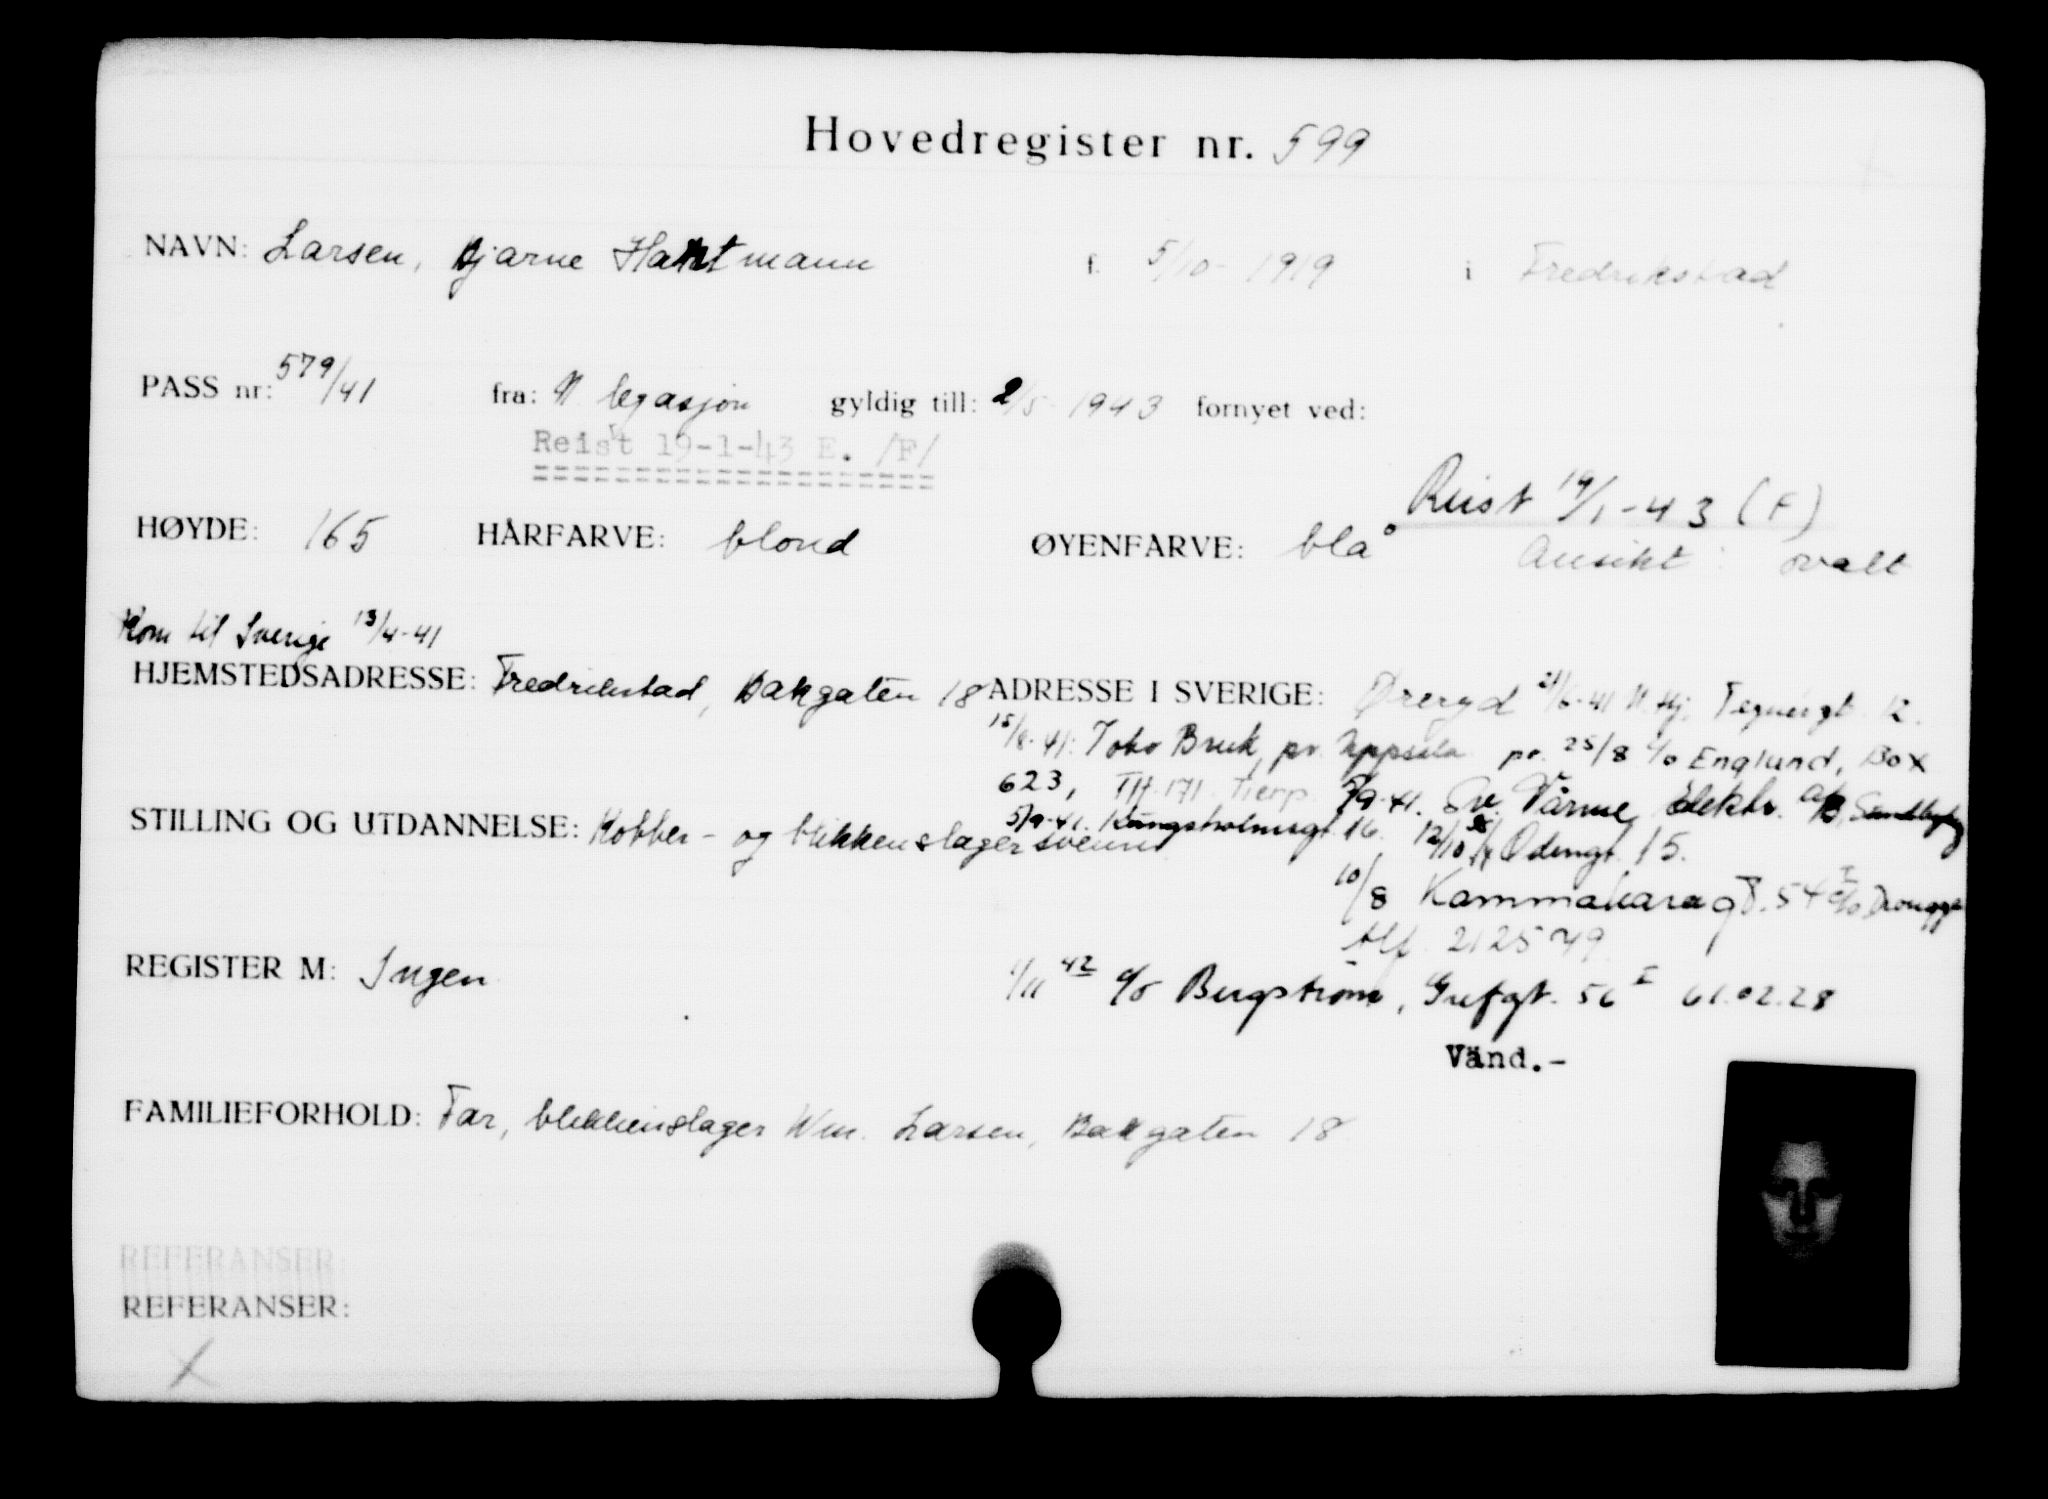 Hovedregister nr. 599
NAVN: Larsen, Bjarne Hartmann f. 5/10-1919 i Fredrikstad
PASS nr: 579/41 fra: N legasjon gyldig till: 2/5-1943 fornyet ved:
Reist 19-1-43 E. /F/
Reist 19/1-43 (F)
HØYDE: 165 HÅRFARVE: blond ØYENFARVE: blå Ansikt: ovalt
Kom til Sverige 13/4-41
HJEMSTEDSADRESSE: Fredrikstad, Bakgaten 18 ADRESSE I SVERIGE: Øreryd 21/6-41 N. Hj. Tegnérgt. 12.
15/8-41: Tobo Bruk, pr. Uppsala pr. 25/8 c/o Englund, Box
623, Tlf. 171 Tierp. Sv. Värme Elektr. A/B,
STILLING OG UTDANNELSE: Kobber- og blikkenslagersvenn
5/9-41. Kungsholmsgt. 16. 12/10 Odengt. 15.
10/8 Kammakaregt. 54 I c/o
tlf. 212579
REGISTER M: Ingen
1/11 42 c/o Bergström, Grefgt. 56 I 61.02.28
Vänd.-
FAMILIEFORHOLD: Far, blikkenslager Wm. Larsen, Bakgaten 18
REFERANSER:
REFERANSER: